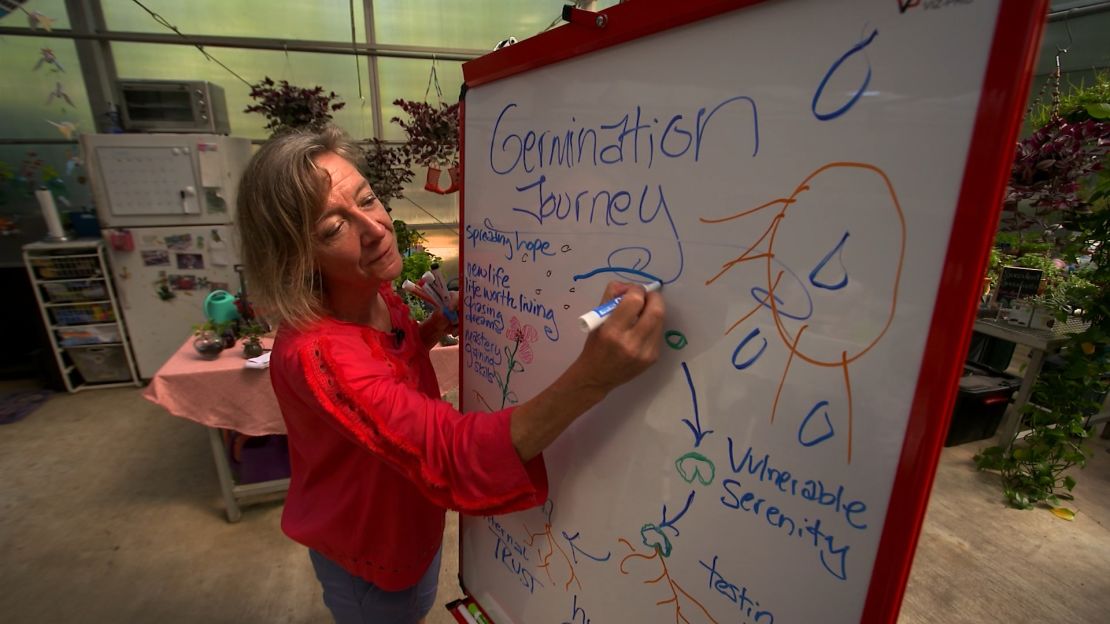 VIZ-PRO
Germination
Journey
spreading hope
new life
life worth living
chasing
dreams
mastery
gaining
skills
Vulnerable
Serenity
TRUST
testin